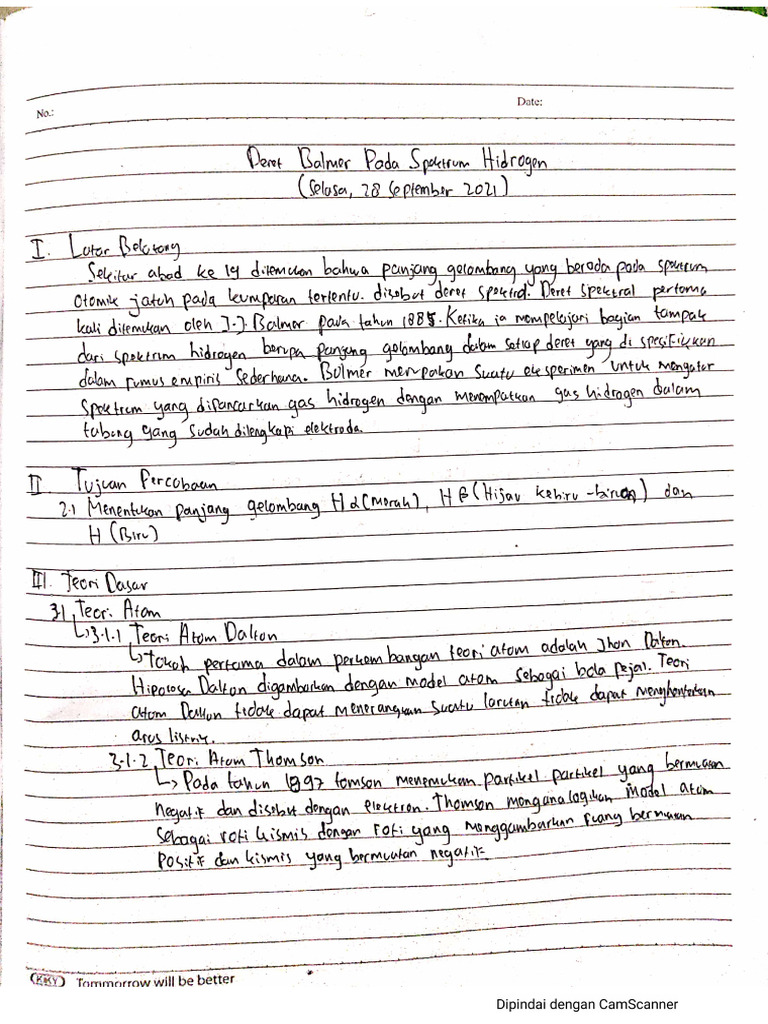 No.:
Date:
Deret Balmer Pada Spektrum Hidrogen
(Selasa, 28 September 2021)
I. Latar Belakang
Sekitar abad ke 19 ditemukan bahwa panjang gelombang yang berada pada spektrum
atomik jatuh pada kumparan tertentu. disebut deret spektral. Deret spektral pertama
kali ditemukan oleh J.J. Balmer pada tahun 1885. Ketika ia mempelajari bagian tampak
dari spektrum hidrogen berupa panjang gelombang dalam setiap deret yang di spesifikkan
dalam rumus empiris sederhana. Balmer merupakan suatu eksperimen untuk mengatur
Spektrum yang dipancarkan gas hidrogen dengan menempatkan gas hidrogen dalam
tabung yang sudah dilengkapi elektroda.
II Tujuan Percobaan
2.1 Menentukan panjang gelombang H α (Merah), H β (Hijau kebiru-biruan) dan
H (Biru)
III. Teori Dasar
3.1 Teori Atom
↳3.1.1 Teori Atom Dalton
↳ Tokoh pertama dalam perkembangan teori atom adalah Jhon Dalton.
Hipotesa Dalton digambarkan dengan model atom sebagai bola pejal. Teori
atom Dalton tidak dapat menerangkan suatu larutan tidak dapat menghantarkan
arus listrik.
3.1.2 Teori Atom Thomson
↳ Pada tahun 1897 tomson menemukan partikel partikel yang bermuatan
negatif dan disebut dengan elektron. Thomson menganalogikan model atom
sebagai roti kismis dengan roti yang menggambarkan ruang bermuatan
Positif dan kismis yang bermuatan negatif
KKY Tommorrow will be better
Dipindai dengan CamScanner